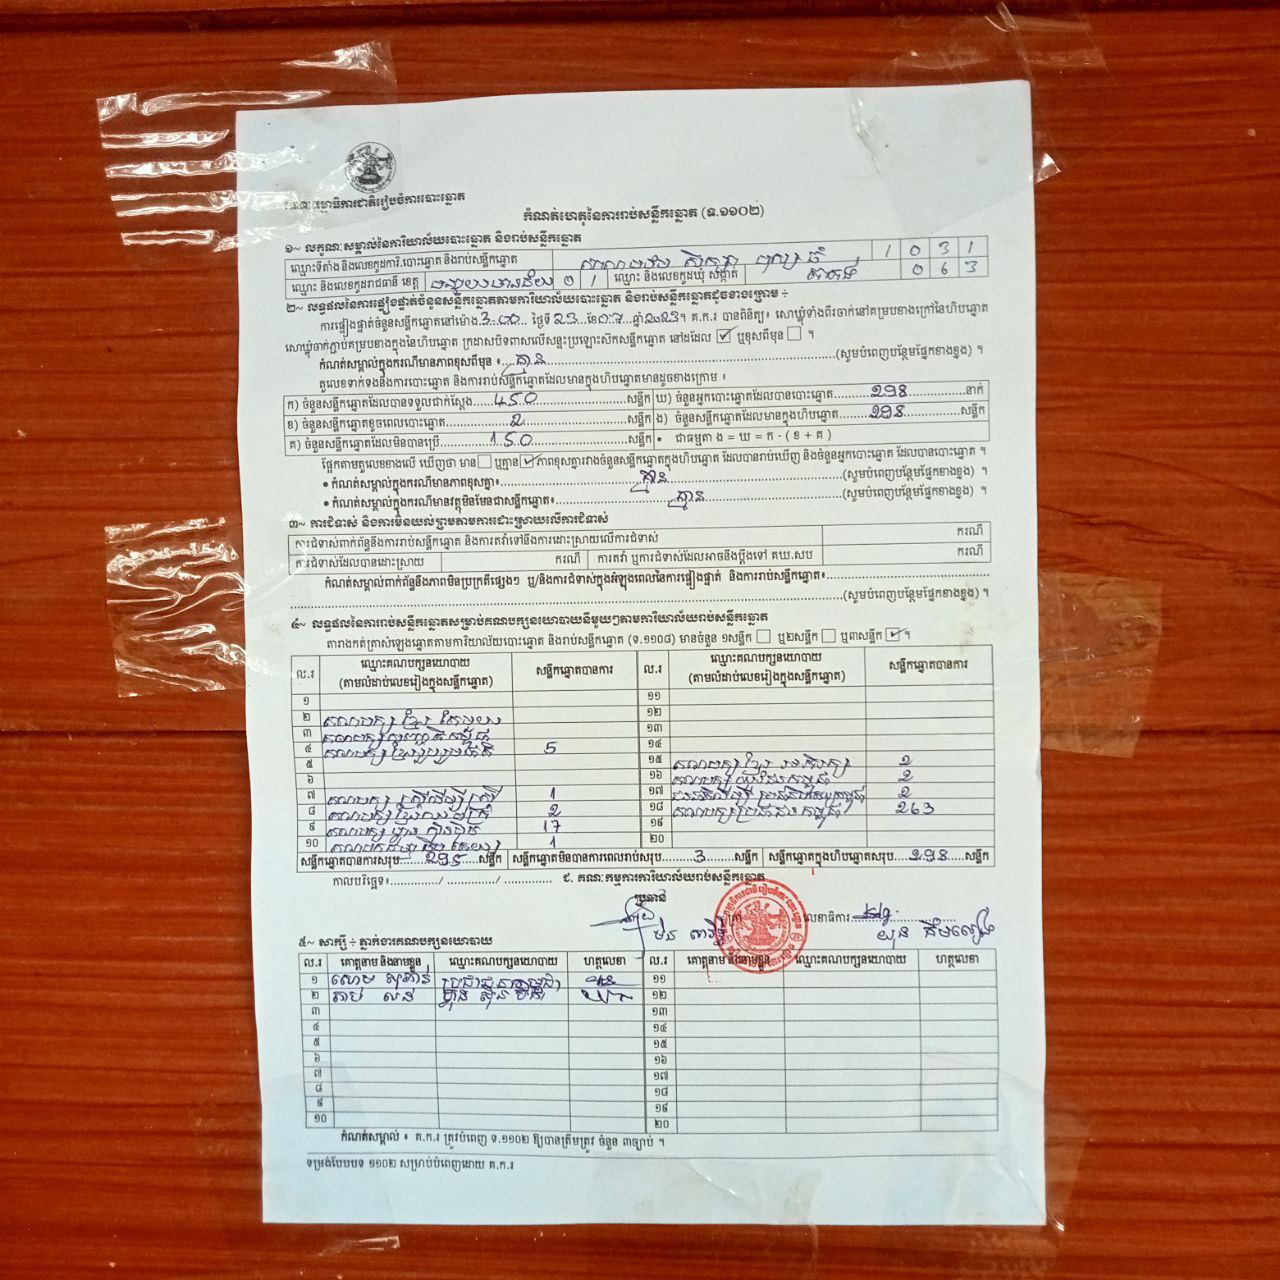 គណៈកម្មាធិការជាតិរៀបចំការបោះឆ្នោត
កំណត់ហេតុនៃការរាប់សន្លឹកឆ្នោត (ទ.១១០២)
១~ លក្ខណៈសម្គាល់នៃការិយាល័យបោះឆ្នោត និងរាប់សន្លឹកឆ្នោត
ឈ្មោះទីតាំង និងលេខកូដការិ.បោះឆ្នោត និងរាប់សន្លឹកឆ្នោត 1 0 3 1
ឈ្មោះ និងលេខកូដរាជធានី ខេត្ត បន្ទាយមានជ័យ 0 1 ឈ្មោះ និងលេខកូដឃុំ សង្កាត់ 0 6 3
២~ លទ្ធផលនៃការផ្ទៀងផ្ទាត់ចំនួនសន្លឹកឆ្នោតតាមការិយាល័យបោះឆ្នោត និងរាប់សន្លឹកឆ្នោតដូចខាងក្រោម ÷
ការផ្ទៀងផ្ទាត់ចំនួនសន្លឹកឆ្នោតនៅម៉ោង 3:00 ថ្ងៃទី 23 ខែ 07 ឆ្នាំ 2023។ គ.ក.រ បានពិនិត្យ៖ សោឃ្លុំទាំងពីរចាក់នៅគម្របខាងក្រៅនៃហិបឆ្នោត
សោឃ្លុំចាក់ភ្ជាប់គម្របខាងក្នុងនៃហិបឆ្នោត ក្រដាសបិទពាសលើសន្ទះប្រឡោះស៊កសន្លឹកឆ្នោត នៅដដែល ☑ ឬខុសពីមុន ☐ ។
កំណត់សម្គាល់ក្នុងករណីមានភាពខុសពីមុន ៖ គ្មាន (សូមបំពេញបន្ថែមផ្នែកខាងខ្នង) ។
តួលេខទាក់ទងនឹងការបោះឆ្នោត និងការរាប់សន្លឹកឆ្នោតដែលមានក្នុងហិបឆ្នោតមានដូចខាងក្រោម ៖
ក) ចំនួនសន្លឹកឆ្នោតដែលបានទទួលជាក់ស្តែង 450 សន្លឹក ឃ) ចំនួនអ្នកបោះឆ្នោតដែលបានបោះឆ្នោត 298 នាក់
ខ) ចំនួនសន្លឹកឆ្នោតខូចពេលបោះឆ្នោត 2 សន្លឹក ង) ចំនួនសន្លឹកឆ្នោតដែលមានក្នុងហិបឆ្នោត 298 សន្លឹក
គ) ចំនួនសន្លឹកឆ្នោតដែលមិនបានប្រើ 150 សន្លឹក • ជាធម្មតា ង = ឃ = ក - ( ខ + គ )
ផ្អែកតាមតួលេខខាងលើ ឃើញថា មាន ☐ ឬគ្មាន ☑ ភាពខុសគ្នារវាងចំនួនសន្លឹកឆ្នោតក្នុងហិបឆ្នោត ដែលបានរាប់ឃើញ និងចំនួនអ្នកបោះឆ្នោត ដែលបានបោះឆ្នោត ។
• កំណត់សម្គាល់ក្នុងករណីមានភាពខុសគ្នា៖ គ្មាន (សូមបំពេញបន្ថែមផ្នែកខាងខ្នង) ។
• កំណត់សម្គាល់ក្នុងករណីមានវត្ថុមិនមែនជាសន្លឹកឆ្នោត៖ គ្មាន (សូមបំពេញបន្ថែមផ្នែកខាងខ្នង) ។
៣~ ការជំទាស់ និងការមិនយល់ព្រមតាមការដោះស្រាយលើការជំទាស់
ការជំទាស់ពាក់ព័ន្ធនឹងការរាប់សន្លឹកឆ្នោត និងការតវ៉ាទៅនឹងការដោះស្រាយលើការជំទាស់ ករណី
ការជំទាស់ដែលបានដោះស្រាយ ករណី ការតវ៉ា ឬការជំទាស់ដែលអាចនឹងប្តឹងទៅ គឃ.សប ករណី
កំណត់សម្គាល់ពាក់ព័ន្ធនឹងភាពមិនប្រក្រតីផ្សេងៗ ឬ/និងការជំទាស់ក្នុងអំឡុងពេលនៃការផ្ទៀងផ្ទាត់ និងការរាប់សន្លឹកឆ្នោត៖
(សូមបំពេញបន្ថែមផ្នែកខាងខ្នង) ។
៤~ លទ្ធផលនៃការរាប់សន្លឹកឆ្នោតសម្រាប់គណបក្សនយោបាយនីមួយៗតាមការិយាល័យរាប់សន្លឹកឆ្នោត
តារាងកត់ត្រាសំឡេងឆ្នោតតាមការិយាល័យបោះឆ្នោត និងរាប់សន្លឹកឆ្នោត (ទ.១១០៨) មានចំនួន ១សន្លឹក ☐ ឬ២សន្លឹក ☐ ឬ៣សន្លឹក ☑ ។
ល.រ ឈ្មោះគណបក្សនយោបាយ (តាមលំដាប់លេខរៀងក្នុងសន្លឹកឆ្នោត) សន្លឹកឆ្នោតបានការ ល.រ ឈ្មោះគណបក្សនយោបាយ (តាមលំដាប់លេខរៀងក្នុងសន្លឹកឆ្នោត) សន្លឹកឆ្នោតបានការ
១ ១១
២ គណបក្ស ខ្មែរ តែមួយ ១២
៣ ១៣
៤ គណបក្សខ្មែររួបរួមជាតិ 5 ១៤
៥ ១៥ គណបក្ស ខ្មែរ អភិរក្ស 2
៦ ១៦ គណបក្ស យុវជនកម្ពុជា 2
៧ គណបក្ស ស្ត្រីដើម្បី ស្ត្រី 1 ១៧ 2
៨ 2 ១៨ គណបក្សប្រជាជនកម្ពុជា 263
៩ គណបក្ស ហ្វ៊ុនស៊ិនប៉ិច 17 ១៩
១០ 1 ២០
សន្លឹកឆ្នោតបានការសរុប 295 សន្លឹក សន្លឹកឆ្នោតមិនបានការពេលរាប់សរុប 3 សន្លឹក សន្លឹកឆ្នោតក្នុងហិបឆ្នោតសរុប 298 សន្លឹក
កាលបរិច្ឆេទ៖ / / ជ. គណៈកម្មការការិយាល័យរាប់សន្លឹកឆ្នោត
ប្រធាន លេខាធិការ
៥~ សាក្សី ÷ ភ្នាក់ងារគណបក្សនយោបាយ
ល.រ គោត្តនាម និងនាមខ្លួន ឈ្មោះគណបក្សនយោបាយ ហត្ថលេខា ល.រ គោត្តនាម និងនាមខ្លួន ឈ្មោះគណបក្សនយោបាយ ហត្ថលេខា
១ ប្រជាជនកម្ពុជា ១១
២ ហ្វ៊ុន ស៊ិន ប៉ិច ១២
៣ ១៣
៤ ១៤
៥ ១៥
៦ ១៦
៧ ១៧
៨ ១៨
៩ ១៩
១០ ២០
កំណត់សម្គាល់ ៖ គ.ក.រ ត្រូវបំពេញ ទ.១១០២ ឱ្យបានត្រឹមត្រូវ ចំនួន ៣ច្បាប់ ។
ទម្រង់បែបបទ ១១០២ សម្រាប់បំពេញដោយ គ.ក.រ